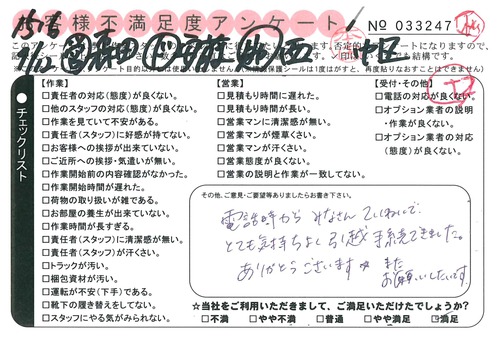 お客様不満足度アンケート
№ 033247
チェックリスト
【作業】
□責任者の対応(態度)が良くない。
□他のスタッフの対応(態度)が良くない。
□作業を見ていて不安がある。
□責任者(スタッフ)に好感が持てない。
□お客様への挨拶が出来ていない。
□ご近所への挨拶・気遣いが無い。
□作業開始前の内容確認がなかった。
□作業開始時間が遅れた。
□荷物の取り扱いが雑である。
□お部屋の養生が出来ていない。
□作業時間が長すぎる。
□責任者(スタッフ)に清潔感が無い。
□責任者(スタッフ)が汗くさい。
□トラックが汚い。
□梱包資材が汚い。
□運転が不安(下手)である。
□靴下の履き替えをしてない。
□スタッフにやる気がみられない。
【営業】
□見積もり時間に遅れた。
□見積もり時間が長い。
□営業マンに清潔感が無い。
□営業マンが煙草くさい。
□営業マンが汗くさい。
□営業態度が良くない。
□営業の説明と作業が一致してない。
【受付・その他】
□電話の対応が良くない。
□オプション業者の説明
・作業が良くない。
□オプション業者の対応
(態度)が良くない。
その他、ご意見・ご要望等ありましたらお書き下さい。
電話時から みなさん ていねいで
とても気持ちよく引越手続きできました。
ありがとうございます また
お願いしたいです。
☆当社をご利用いただきまして、ご満足いただけたでしょうか?
□不満 □やや不満 □普通 □やや満足 □満足